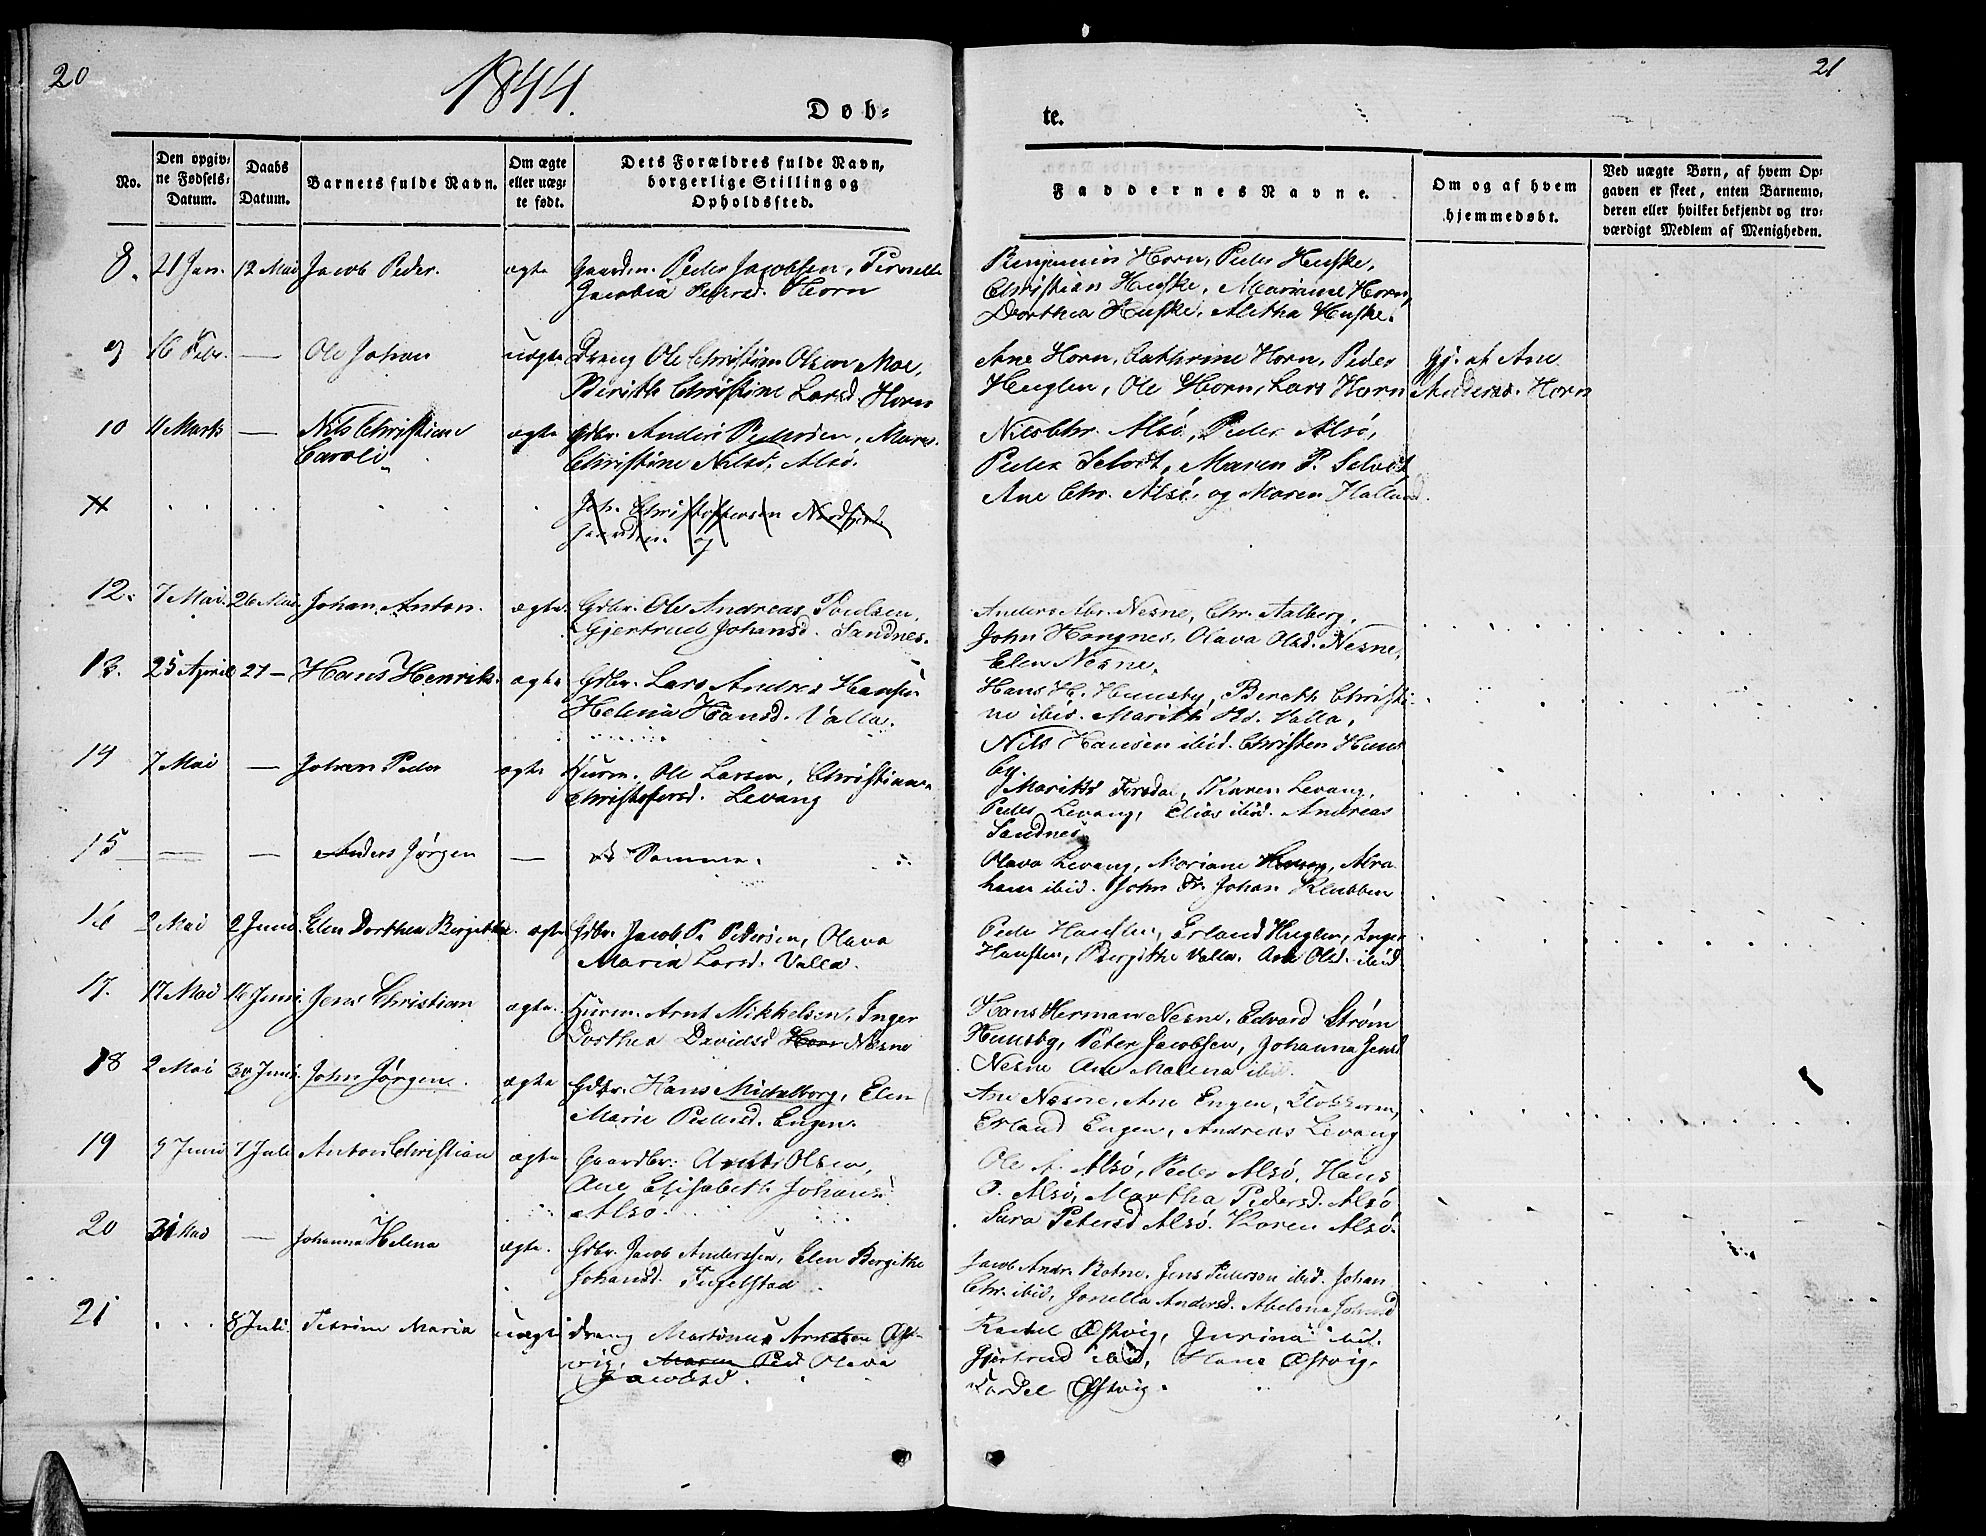 20
1844.
Døb-
No.
Den opgiv-
ne Fødsels-
Datum.
Daabs
Datum.
Barnets fulde Navn.
Om ægte
eller uæg-
te født.
Dets Forældres fulde Navn,
borgerlige Stilling og
Opholdssted.
8. 21 Jan. 12 Mai Jacob Peder. ægte Gaardm. Peder Jacobsen,
Jacobia Pedersd. Horn
9 16 Febr. — Ole Johan uægte Dreng Ole Christian Olsen Moe,
Berith Christine Larsd. Horn
10 11 Marts — Nils Christian ægte Gdbr. Anders Pedersen, Maren
Caroli Christine Nilsd. Alsø.
11 Joh. Christophersen
Gaardm. og
12. 7 Mai. 26 Mai. Johan Anton. ægte. Gdbr. Ole Andreas Poulsen,
Gjertrud Johansd. Sandnes.
13. 25 April 27 — Hans Henrik. ægte Gdbr. Lars Andreas Hansen
Helena Hansd. Valla.
14 7 Mai — Johan Peder ægte Huusm. Ole Larsen, Christiana
Christofersd. Levang
15 — — Anders Jørgen — de Samme.
16 2 Mai 2 Juni. Elen Dorthea Birgithe. ægte Gdbr. Jacob P. Pedersen, Olava
Maria Larsd. Valla.
17. 17 Mai 16 Juni Jens Christian ægte. Huusm. Arnt Mikkelsen, Inger
Dorthea Davidsd Horn Nesne
18 2 Mai 30 Juni. John Jørgen. ægte Gdbr. Hans Mickalborg, Elen
Marie Pedersd. Engen.
19 9 Juni 7 Juli Anton Christian ægte Gaardbr. Arnt Olsen,
Ane Elisabeth Johans
Alsø.
20 31 Mai — Johanna Helena ægte. Gdbr. Jacob Anderssen, Elen Bergithe
Johansd.
21 8 Juli Petrine Maria uægte dreng Martinus Arntsen Øst-
vig, Maren Ped Olava
Jacobsd.
21
te.
Faddernes Navne.
Om og af hvem
hjemmedøbt.
Ved uægte Børn, af hvem Op-
gaven er skeet, enten Barnemo-
deren eller hvilket bekjendt og tro-
værdigt Medlem af Menigheden.
Benjamin Horn, Peder Huske,
Christian Huske, Mariane Horn,
Dorthea Huske, Aletha Huske.
Ane Horn, Cathrine Horn, Peder Hj. af Ane
Huglen, Ole Horn, Lars Horn Andersd. Horn
Nils Chr. Alsø, Peder Alsø,
Peder Selvet, Maren P. Selvet
Ane Chr. Alsø, og Maren
Anders Abr. Nesne, Chr. Aalberg,
John Hongnes, Olava Olsd. Nesne,
Elen Nesne.
Hans H. Huusby, Bereth Christi-
ne ibid. Marith Valla,
Nils Hansen ibid. Christen Huus
by
Marith Forsdal, Karen Levang,
Peder Levang, Elias ibid. Andreas
Sandnes
Olava Levang, Mariane Levang, Abra
ham ibid. John Fr. Johan Klubben
Peder Erland Huglen, Inger
Birgithe Valla. Ane Olsd. ibid
Hans Herman Nesne, Edvard Strøm
Huusby, Peter Jacobsen, Johanna Jensd
Nesne Ane Malena ibid.
Ane Nesne, Ane Engen,
Erland Engen, Andreas Levang
Ole A. Alsø, Peder Alsø, Hans
O. Alsø, Martha Pedersd. Alsø
Sara Petersd Alsø. Karen Alsø.
Jacob Andr. Botne, Jens Pederson ibid. Johan
Chr. ibid, Jonella Andersd. Abelona Johansd
Rachel Østvig, Jurina ibid.
Gjertrud ibid, Hans Østvig,
Østvig.